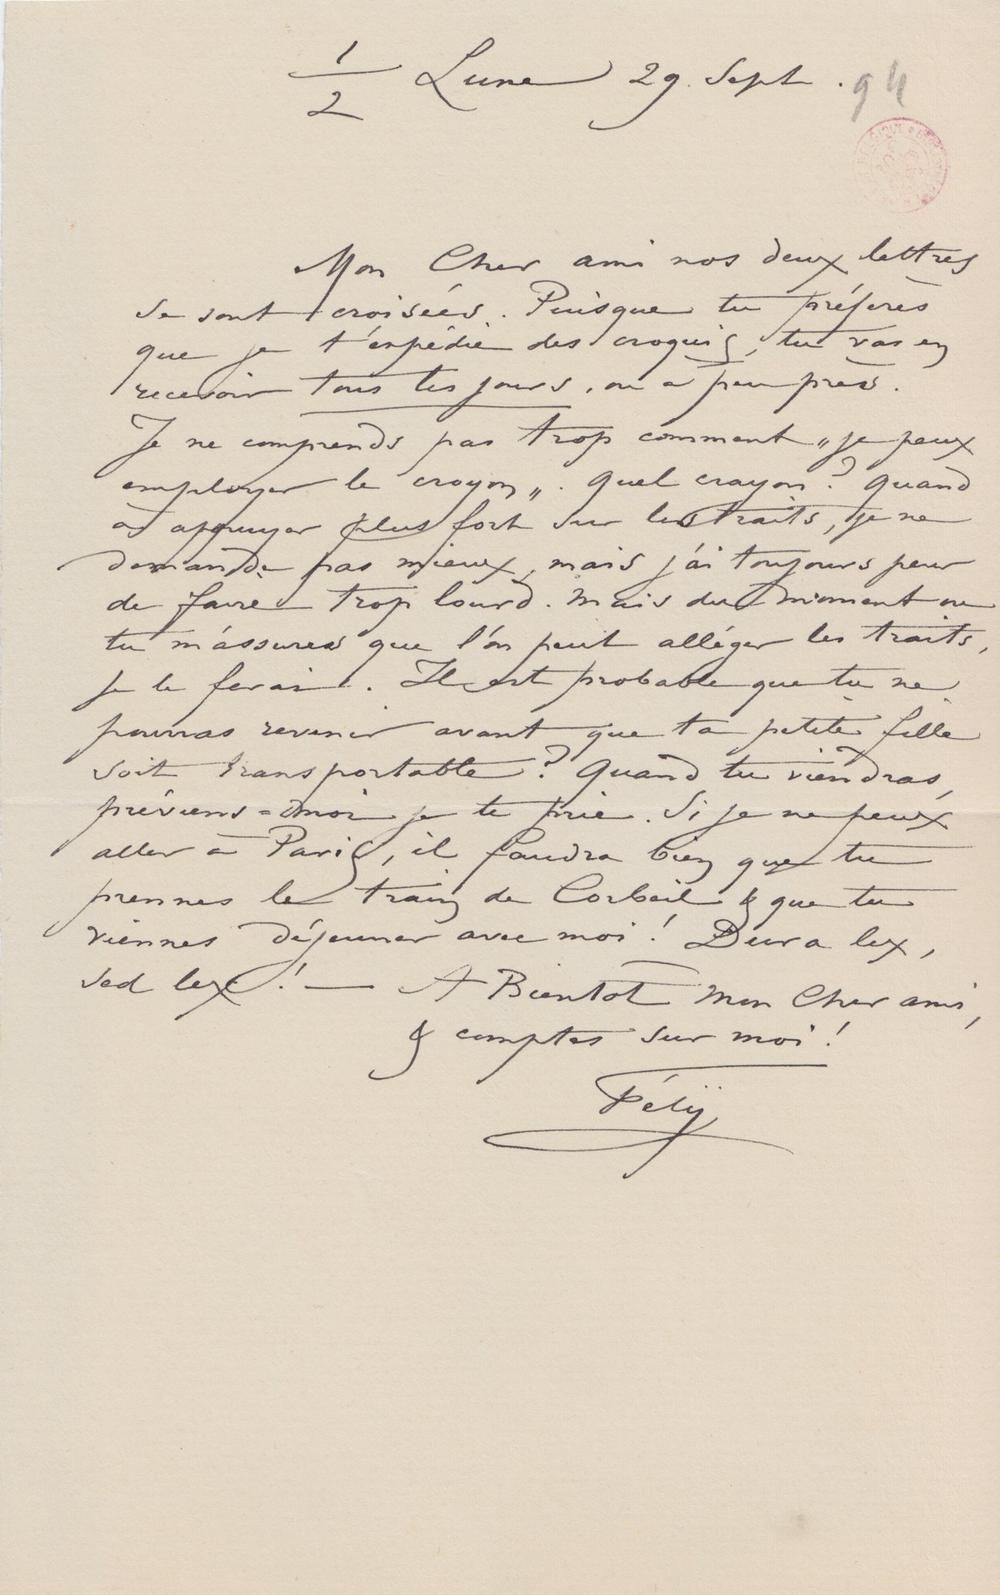 1/2 Lune 29. Sept. 94
BELGIQUE
Mon Cher ami nos deux lettres
se sont croisées. Puisque tu préfères
que je t'expédie des croquis, tu vas en
recevoir tous les jours, ou a peu près.
Je ne comprends pas trop comment „je peux
employer le crayon„. Quel crayon? Quand
à appuyer plus fort sur les traits, je ne
demande pas mieux, mais j'ai toujours peur
de faire trop lourd. Mais du moment ou
tu m'assures que l'on peut alléger les traits,
je le ferai. Il est probable que tu ne
pourras revenir avant que ta petite fille
soit transportable? Quand tu viendras,
préviens=moi je te prie. Si je ne peux
aller à Paris, il faudra bien que tu
prennes le train de Corbeil & que tu
viennes déjeuner avec moi! Dura lex,
sed lex! — A Bientôt Mon Cher ami,
& comptes sur moi!
Fély